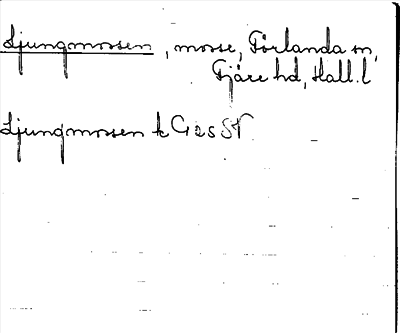 Ljungmossen, mosse, Förlanda sn,
Fjäre hd, Hall. l
Ljungmossen k G 25 SV